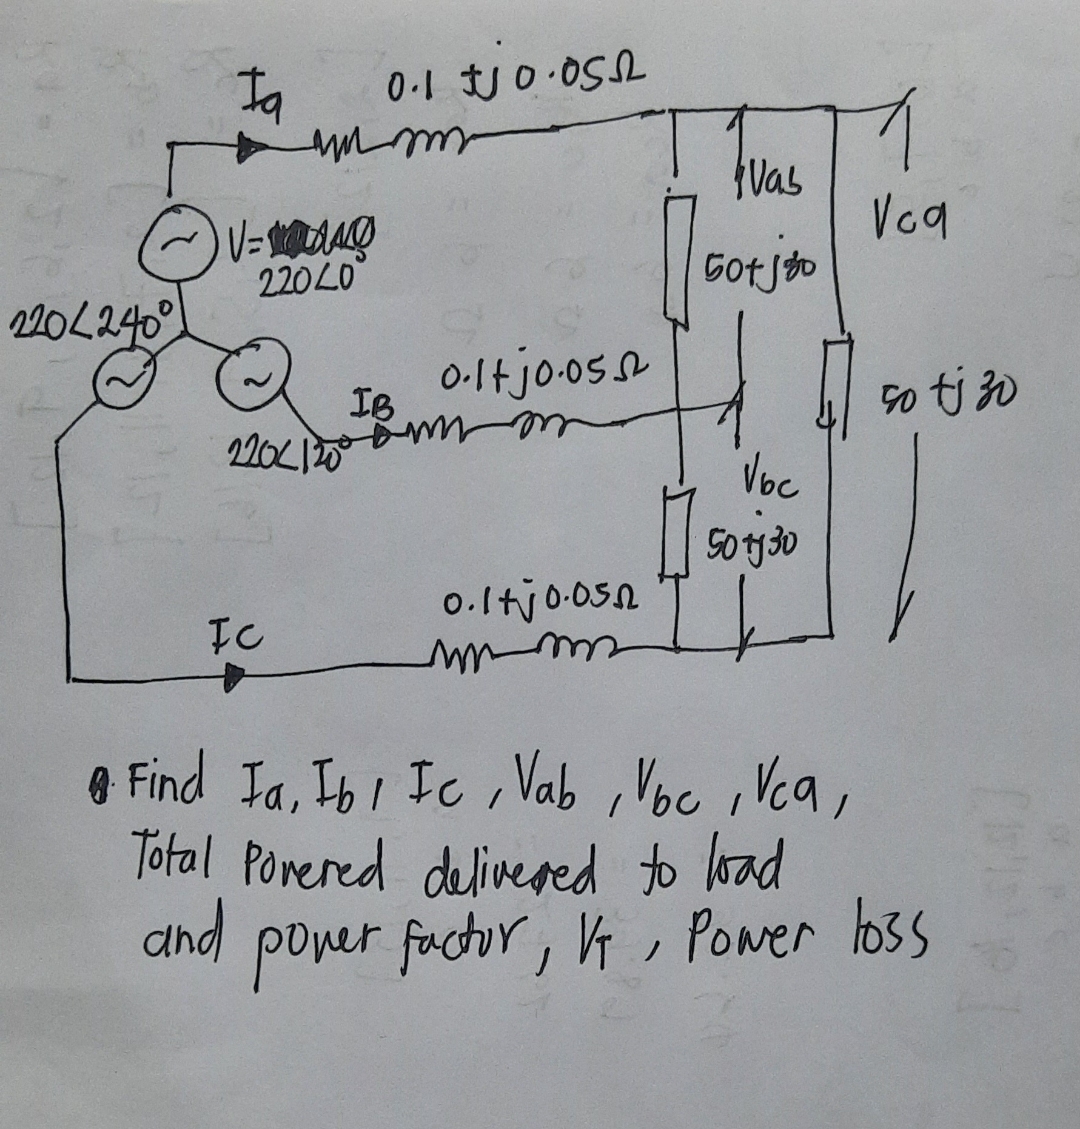 Ia
0.1 +j 0.05Ω
Vab
Vca
V=
220∠0°
50+j30
220∠240°
0.1+j0.05Ω
IB
50 +j 30
220∠120°
Vbc
50+j30
0.1+j0.05Ω
IC
Find Ia, Ib, Ic, Vab, Vbc, Vca,
Total Powered delivered to load
and power factor, VT, Power loss